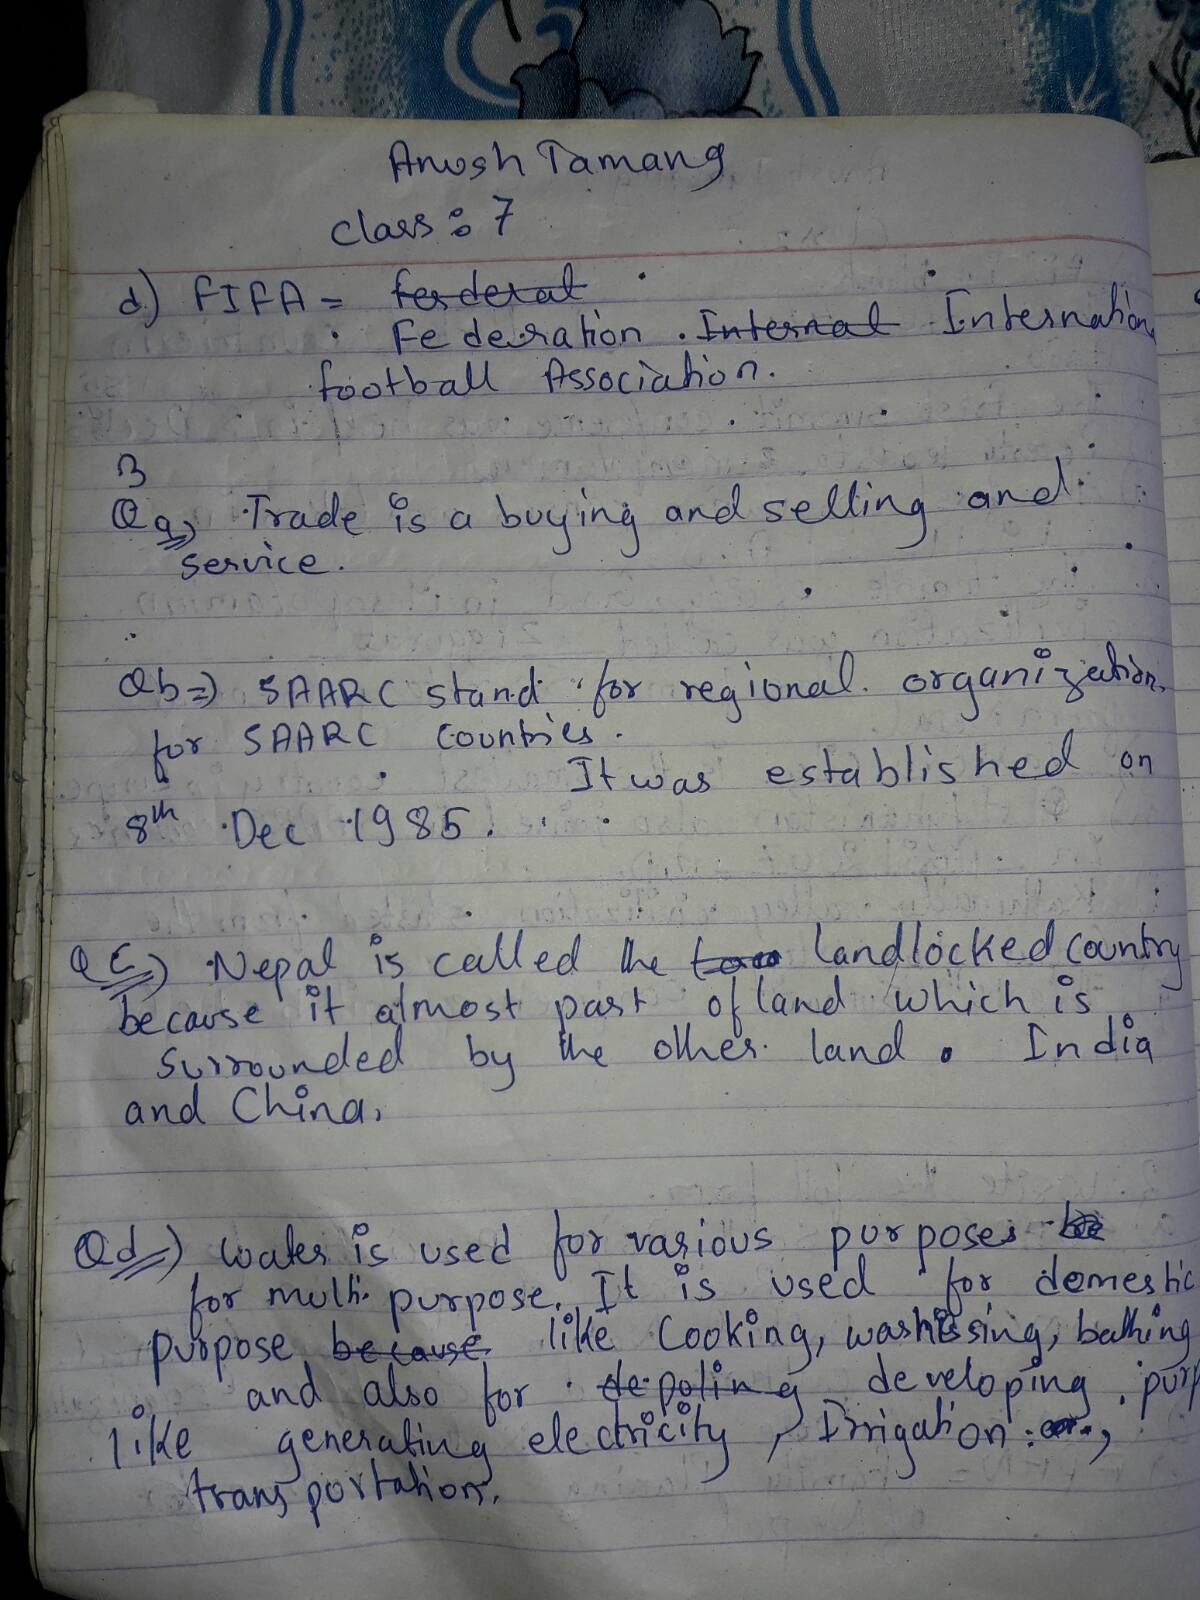 Anush Tamang
class: 7
d) FIFA = ferderat
Federation Internat Internation
football Association.
B
Qa) Trade is a buying and selling and
service.
Qb=) SAARC stand for regional organization
for SAARC countries.
It was established on
8th Dec 1985.
Qc=) Nepal is called the landlocked country
because it almost part of land which is
surrounded by the other land. India
and China,
Qd=) Water is used for various purposes
for multi purpose. It is used for domestic
purpose because like Cooking, washissing, bathing
and also for depoling developing purp
like generating electricity, Irrigation,
transportation.